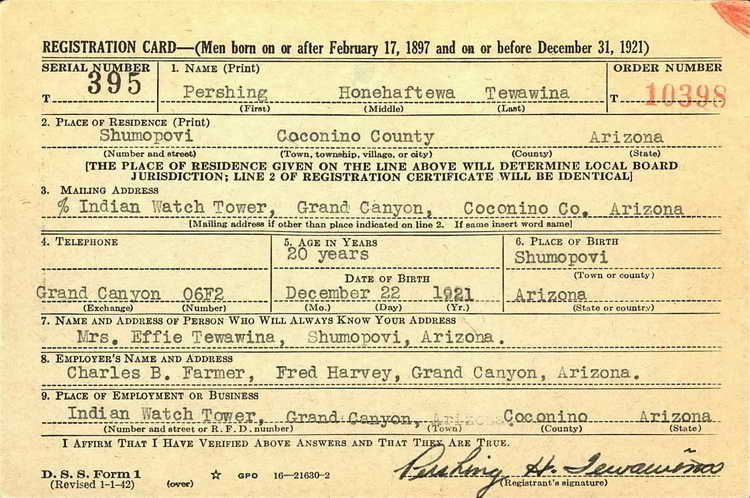 REGISTRATION CARD—(Men born on or after February 17, 1897 and on or before December 31, 1921)
SERIAL NUMBER 1. NAME (Print) ORDER NUMBER
T 395 Pershing Honehaftewa Tewawina T 10398
(First) (Middle) (Last)
2. PLACE OF RESIDENCE (Print)
Shumopovi Coconino County Arizona
(Number and street) (Town, township, village, or city) (County) (State)
[THE PLACE OF RESIDENCE GIVEN ON THE LINE ABOVE WILL DETERMINE LOCAL BOARD
JURISDICTION; LINE 2 OF REGISTRATION CERTIFICATE WILL BE IDENTICAL]
3. MAILING ADDRESS
% Indian Watch Tower, Grand Canyon, Coconino Co. Arizona
[Mailing address if other than place indicated on line 2. If same insert word same]
4. TELEPHONE 5. AGE IN YEARS 6. PLACE OF BIRTH
20 years Shumopovi
DATE OF BIRTH (Town or county)
Grand Canyon 06F2 December 22 1921 Arizona
(Exchange) (Number) (Mo.) (Day) (Yr.) (State or country)
7. NAME AND ADDRESS OF PERSON WHO WILL ALWAYS KNOW YOUR ADDRESS
Mrs. Effie Tewawina, Shumopovi, Arizona.
8. EMPLOYER'S NAME AND ADDRESS
Charles B. Farmer, Fred Harvey, Grand Canyon, Arizona.
9. PLACE OF EMPLOYMENT OR BUSINESS
Indian Watch Tower, Grand Canyon, Arizona Coconino Arizona
(Number and street or R. F. D. number) (Town) (County) (State)
I AFFIRM THAT I HAVE VERIFIED ABOVE ANSWERS AND THAT THEY ARE TRUE.
D. S. S. Form 1
(Revised 1-1-42) (over) ☆ GPO 16—21630-2
Pershing H. Tewawina
(Registrant's signature)